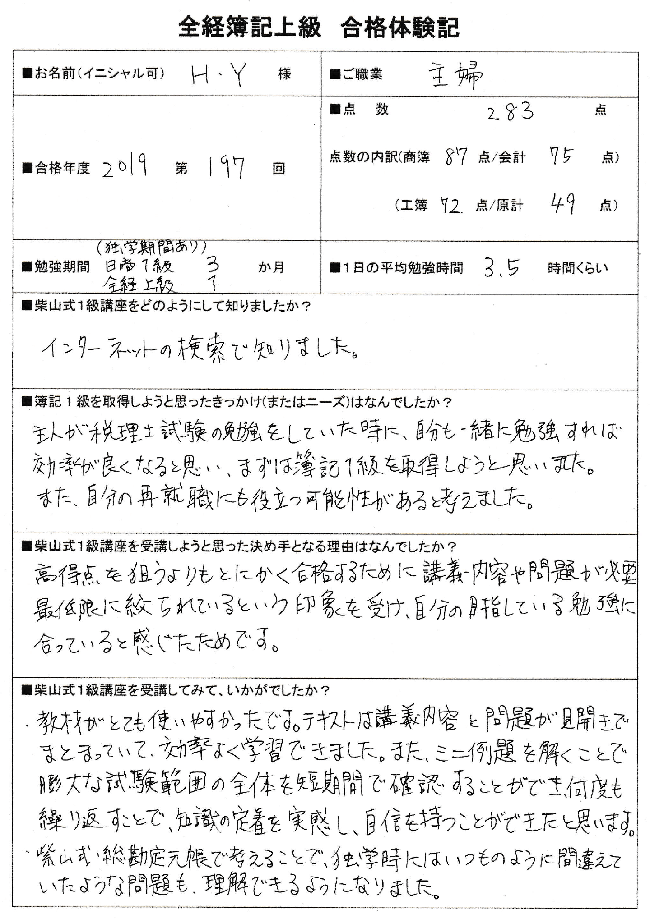 全経簿記上級 合格体験記
■お名前(イニシャル可) H・Y 様
■ご職業 主婦
■合格年度 2019 第 197 回
■点 数 283 点
点数の内訳(商簿 87 点/会計 75 点)
(工簿 72 点/原計 49 点)
(独学期間あり)
■勉強期間 日商1級 3 か月
全経上級 1
■1日の平均勉強時間 3.5 時間くらい
■柴山式1級講座をどのようにして知りましたか?
インターネットの検索で知りました。
■簿記1級を取得しようと思ったきっかけ(またはニーズ)はなんでしたか?
主人が税理士試験の勉強をしていた時に、自分も一緒に勉強すれば
効率が良くなると思い、まずは簿記1級を取得しようと思いました。
また、自分の再就職にも役立つ可能性があると考えました。
■柴山式1級講座を受講しようと思った決め手となる理由はなんでしたか?
高得点を狙うよりもとにかく合格するために講義内容や問題が必要
最低限に絞られているという印象を受け、自分の目指している勉強に
合っていると感じたためです。
■柴山式1級講座を受講してみて、いかがでしたか?
・教材がとても使いやすかったです。テキストは講義内容と問題が見開きで
まとまっていて、効率よく学習できました。また、ミニ例題を解くことで
膨大な試験範囲の全体を短期間で確認することができ、何度も
繰り返すことで、知識の定着を実感し、自信を持つことができたと思います。
・柴山式総勘定元帳で考えることで、独学時にはいつものように間違えて
いたような問題も、理解できるようになりました。